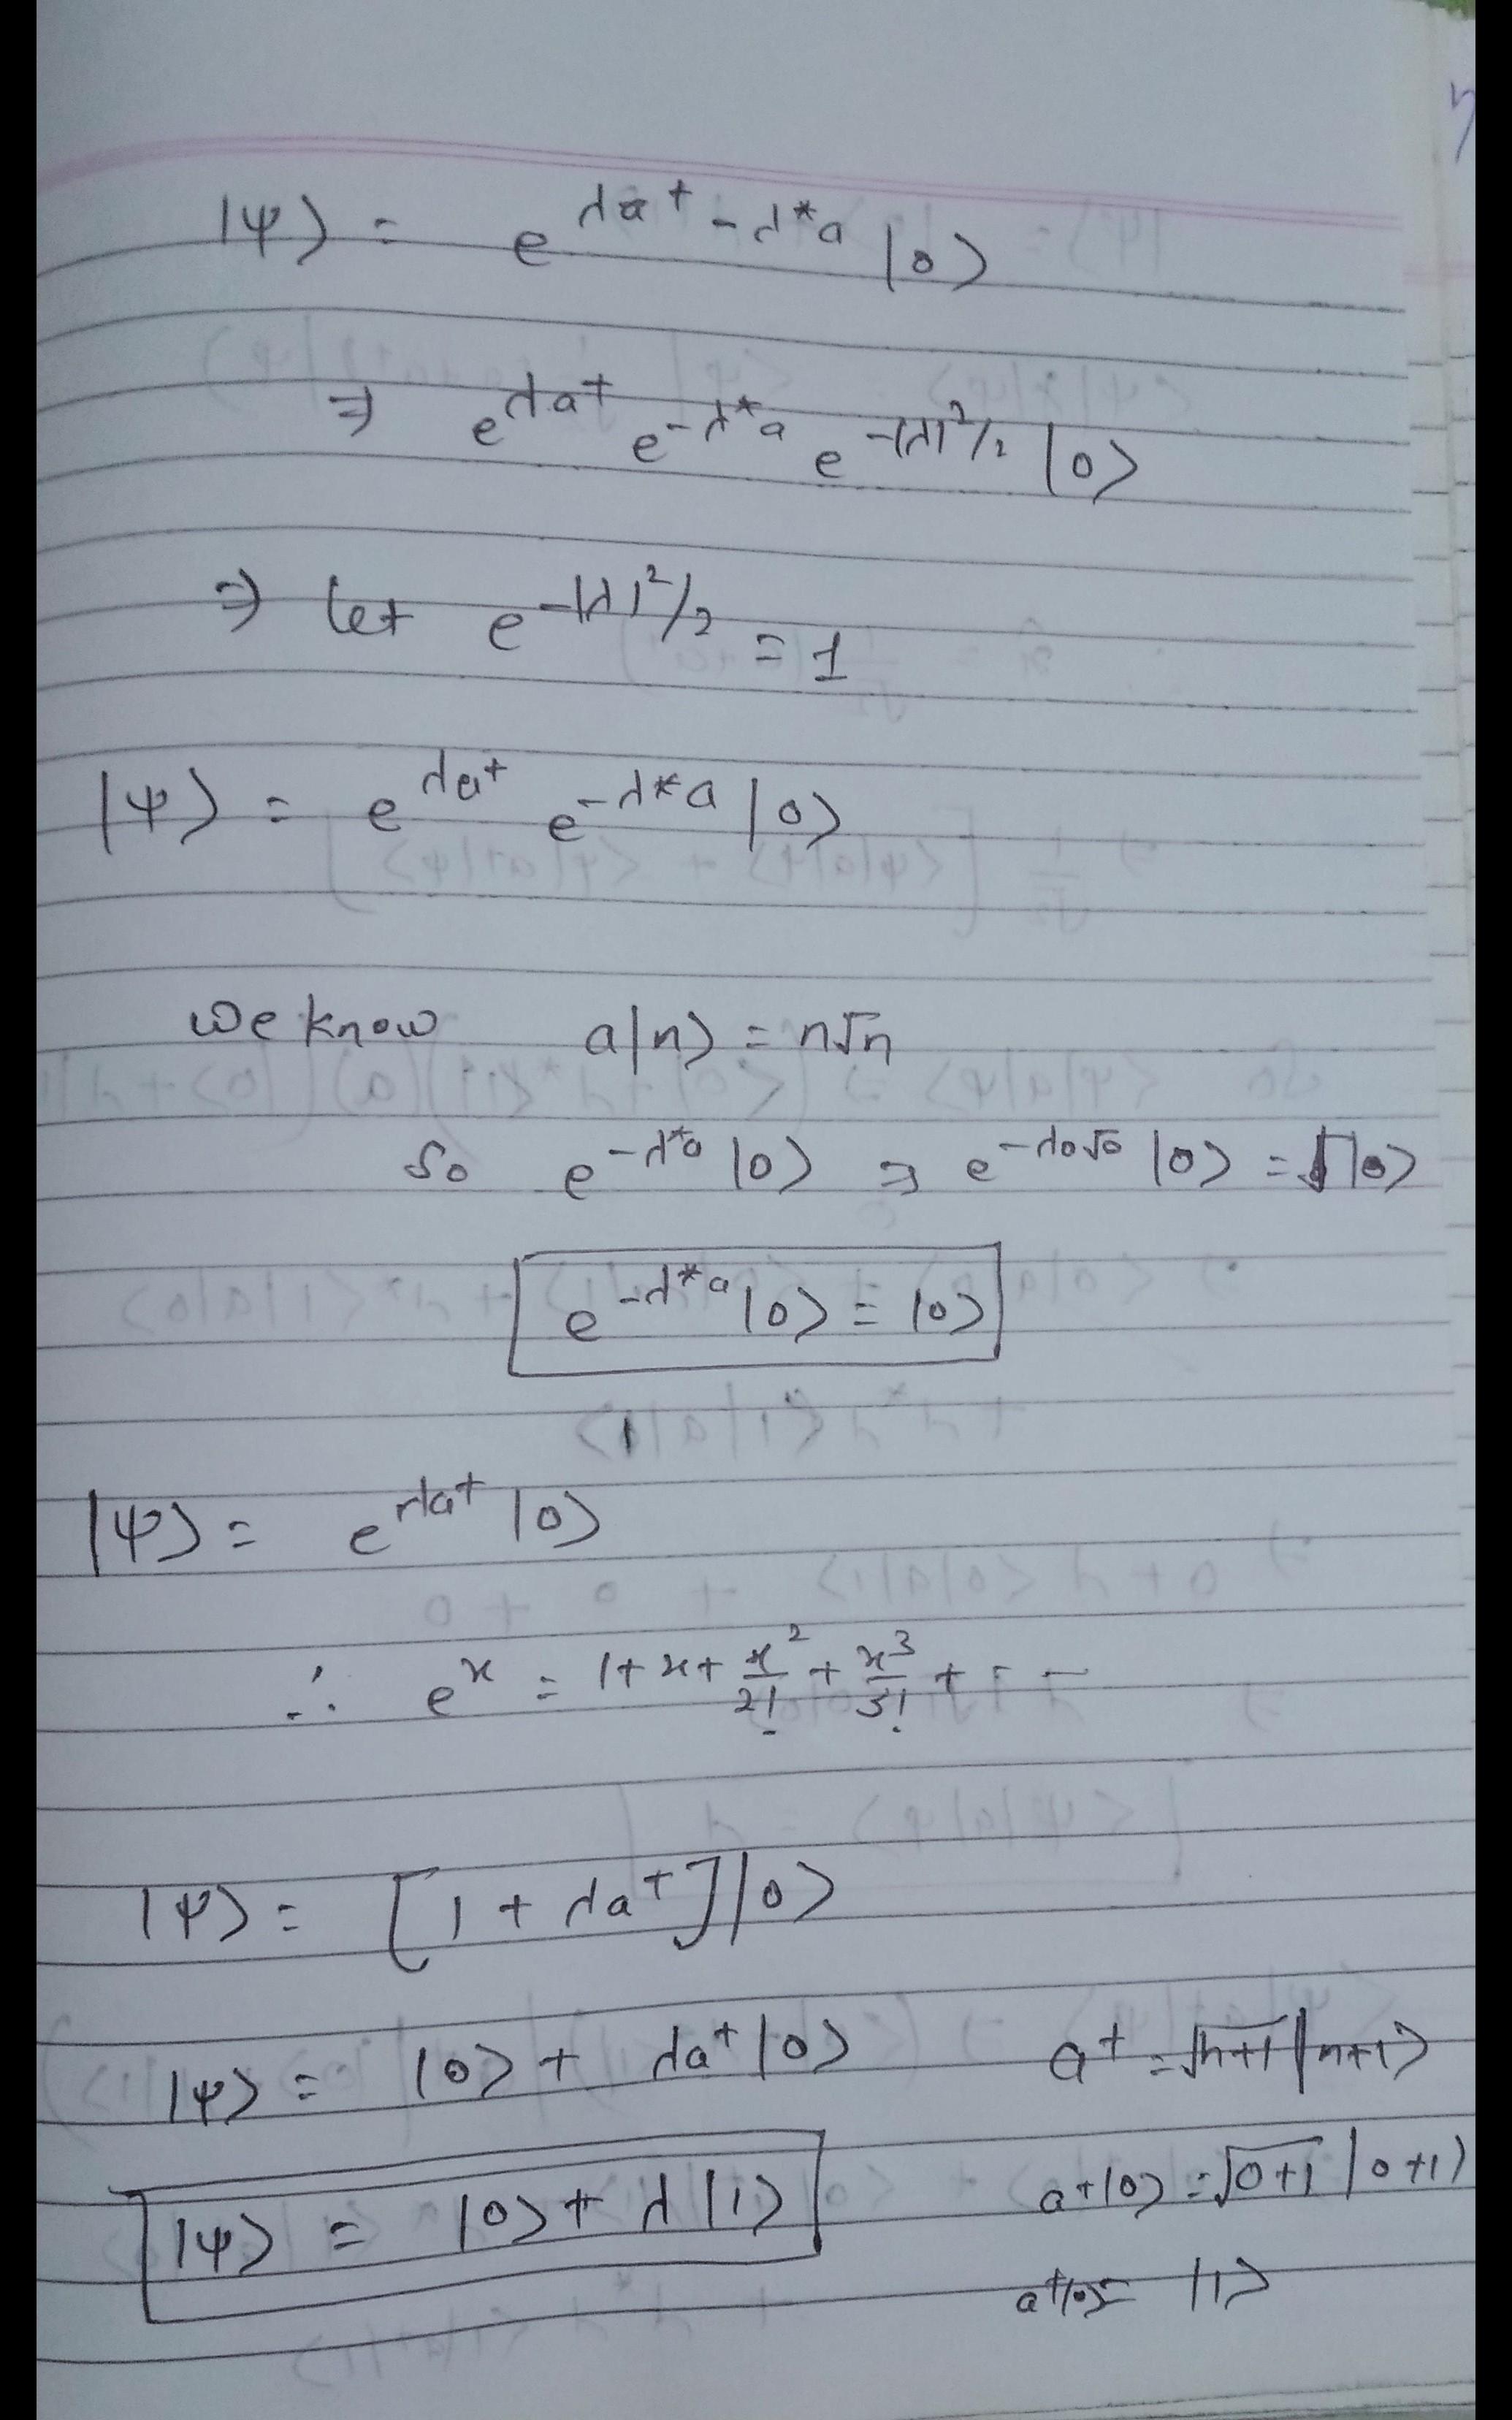 |ψ⟩ = e^{λa† - λ*a} |0⟩
⇒ e^{λa†} e^{-λ*a} e^{-|λ|²/2} |0⟩
⇒ Let e^{-|λ|²/2} = 1
|ψ⟩ = e^{λa†} e^{-λ*a} |0⟩
we know a|n⟩ = n√n
So e^{-λ*a} |0⟩ ⇒ e^{-λ0√0} |0⟩ = |0⟩
e^{-λ*a} |0⟩ = |0⟩
|ψ⟩ = e^{λa†} |0⟩
∴ e^x = 1 + x + x²/2! + x³/3! + - -
|ψ⟩ = [1 + λa†] |0⟩
|ψ⟩ = |0⟩ + λa† |0⟩ a† = √n+1 |n+1⟩
|ψ⟩ = |0⟩ + λ |1⟩ a†|0⟩ = √0+1 |0+1⟩
a†|0⟩ = |1⟩